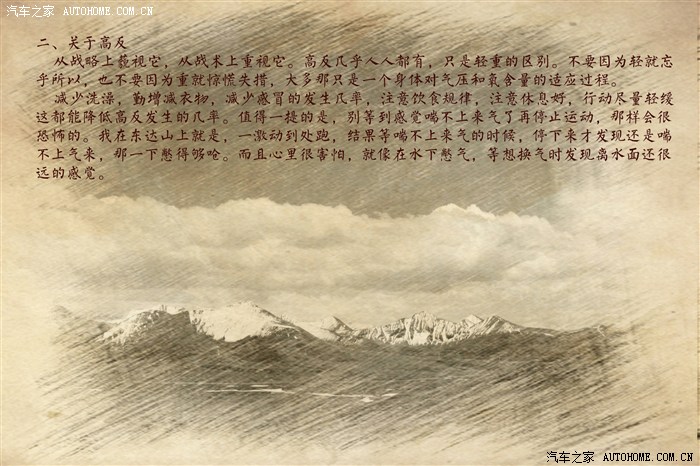 汽车之家 AUTOHOME.COM.CN
二、关于高反
从战略上藐视它，从战术上重视它。高反几乎人人都有，只是轻重的区别。不要因为轻就忘
乎所以，也不要因为重就惊慌失措，大多那只是一个身体对气压和氧含量的适应过程。
减少洗澡，勤增减衣物，减少感冒的发生几率，注意饮食规律，注意休息好，行动尽量轻缓
这都能降低高反发生的几率。值得一提的是，别等到感觉喘不上来气了再停止运动，那样会很
恐怖的。我在东达山上就是，一激动到处跑，结果等喘不上来气的时候，停下来才发现还是喘
不上气来，那一下憋得够呛。而且心里很害怕，就像在水下憋气，等想换气时发现离水面还很
远的感觉。
汽车之家 AUTOHOME.COM.CN